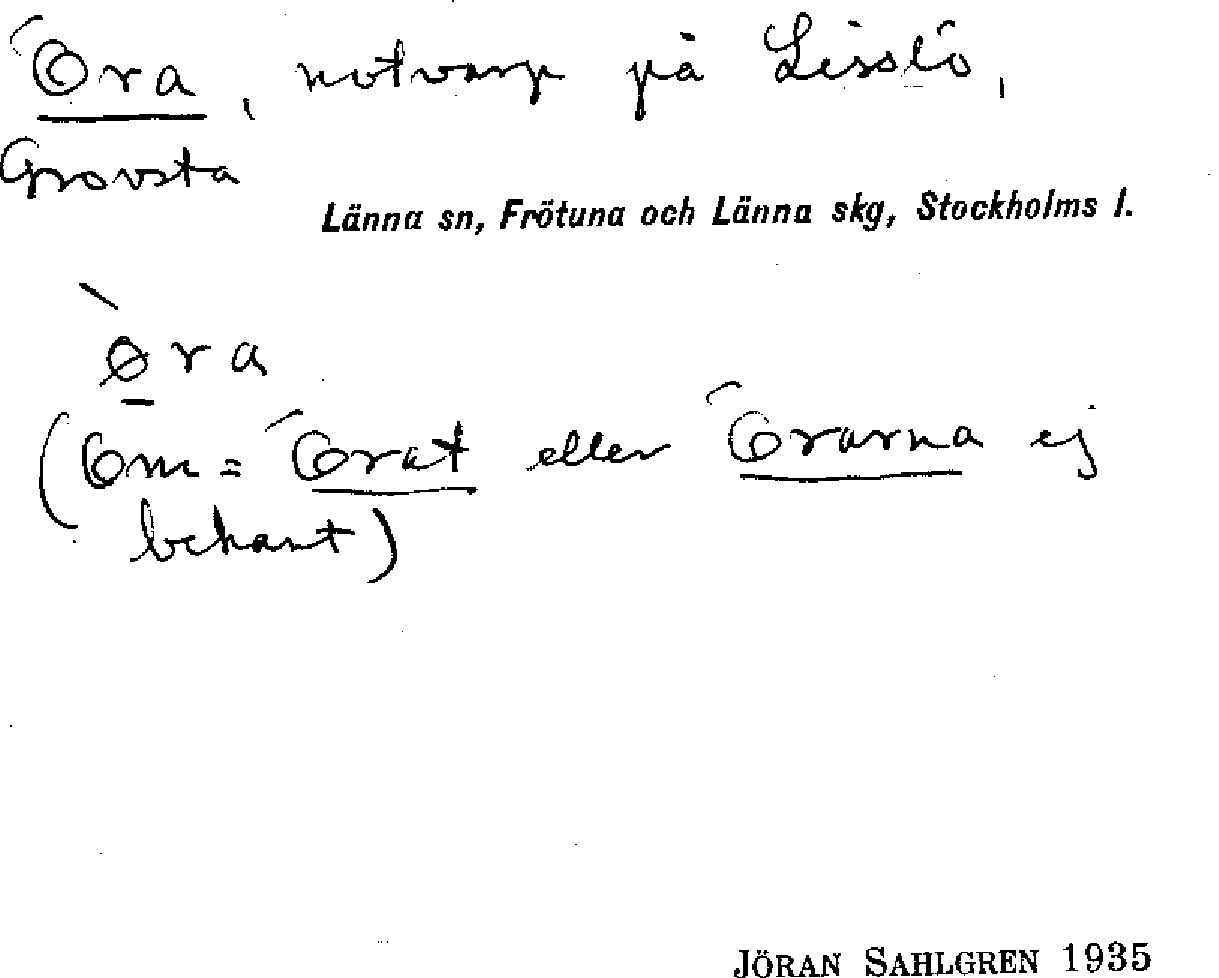 Öra, notvarp på Lisslö,
Grovsta
Länna sn, Frötuna och Länna skg, Stockholms l.
ø̀ra
(Om = Örat eller Örarna ej
bekant)
JÖRAN SAHLGREN 1935